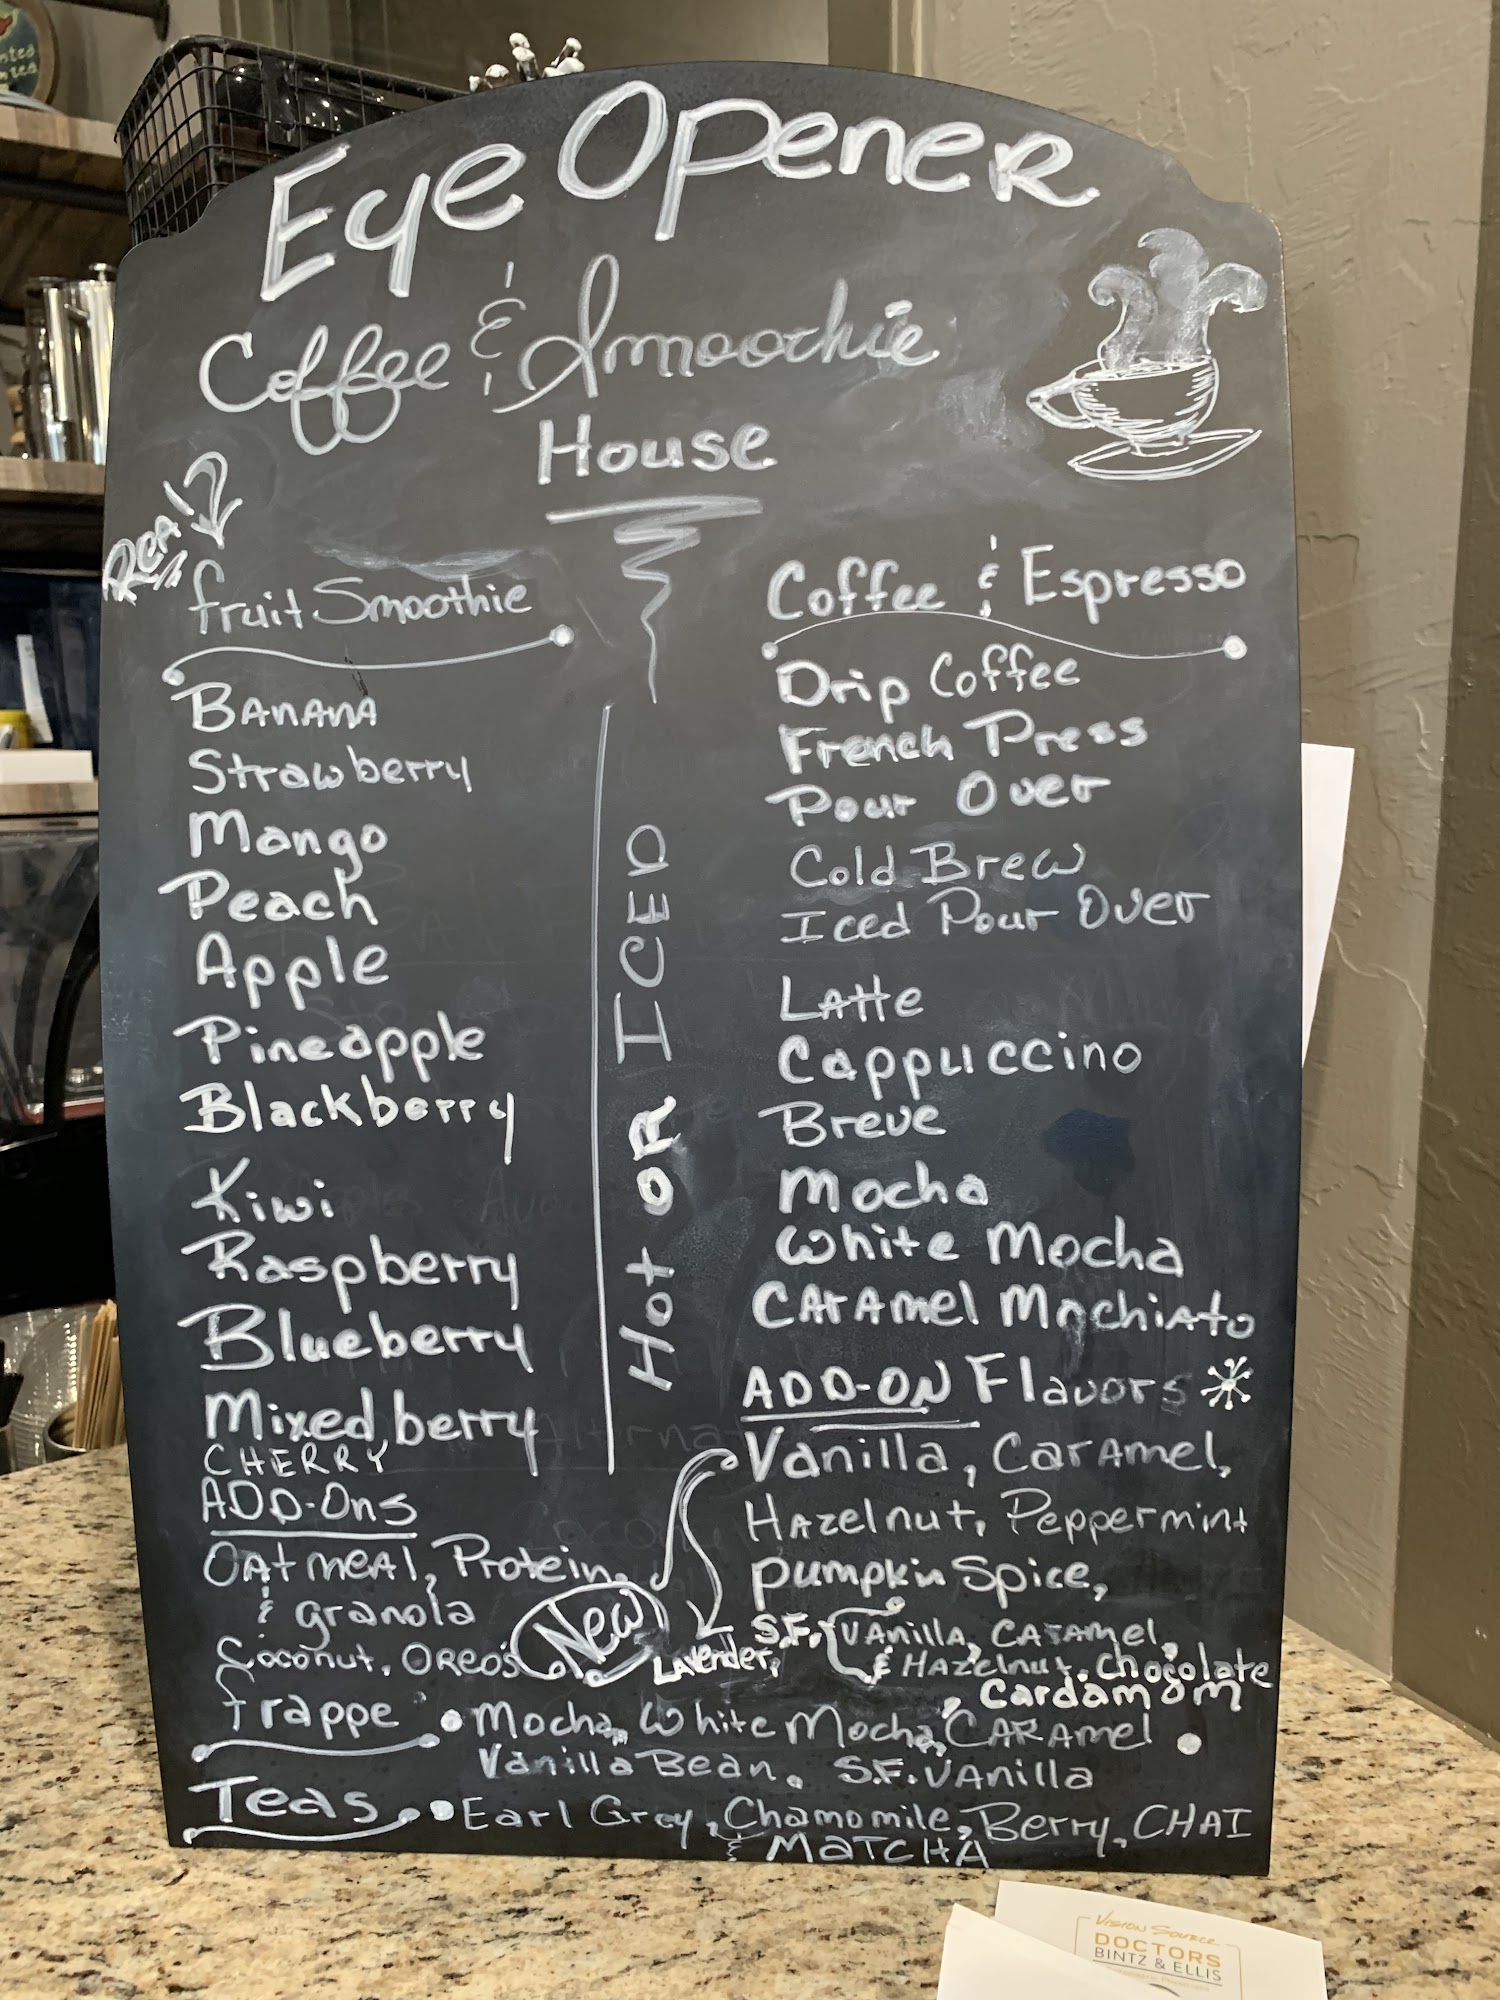 Eye Opener
Coffee & Smoothie
House
Real
fruit Smoothie
Banana
Strawberry
Mango
Peach
Apple
Pineapple
Blackberry
Kiwi
Raspberry
Blueberry
Mixed berry
CHERRY
ADD-Ons
Oatmeal, Protein,
& granola
Coconut, Oreo's
Hot OR ICED
Coffee & Espresso
Drip Coffee
French Press
Pour Over
Cold Brew
Iced Pour Over
Latte
Cappuccino
Breve
Mocha
White Mocha
Caramel Mochiato
ADD-ON Flavors
Vanilla, Caramel,
Hazelnut, Peppermint
Pumpkin Spice,
New
Lavender,
S.F. Vanilla, Caramel,
& Hazelnut, Chocolate
Cardamom
frappe Mocha, White Mocha, Caramel
Vanilla Bean, S.F. Vanilla
Teas Earl Grey, Chamomile, Berry, CHAI
& MATCHA
Vision Source
DOCTORS
BINTZ & ELLIS